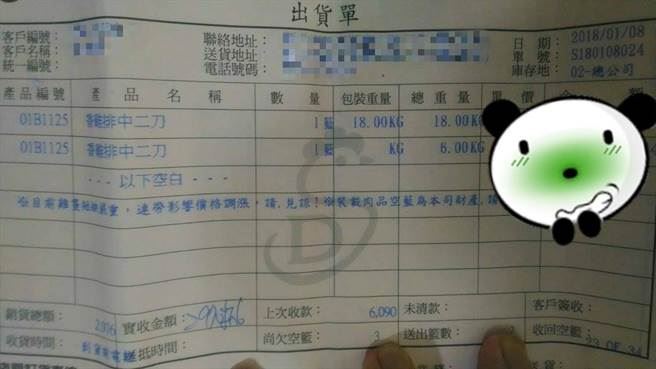 出貨單
客戶編號： 聯絡地址： 日期：2018/01/08
客戶名稱： 送貨地址： 單號：S180108024
統一編號： 電話號碼： 庫存地：02-總公司
產品編號 產品名稱 數量 包裝重量 總重量 單價 金
01B1125 雞排中二刀 1籃 18.00KG 18.00KG
01B1125 雞排中二刀 1籃 KG 6.00KG
---以下空白---
※目前雞隻短缺嚴重，連帶影響價格調漲，請.見諒!※裝載肉品空籃為本司財產.請
銷貨總額： 實收金額： 上次收款： 6,090 未清款： 客戶簽收：
收貨時間： 抵時間： 尚欠空籃： 3 送出籃數： 收回空籃：